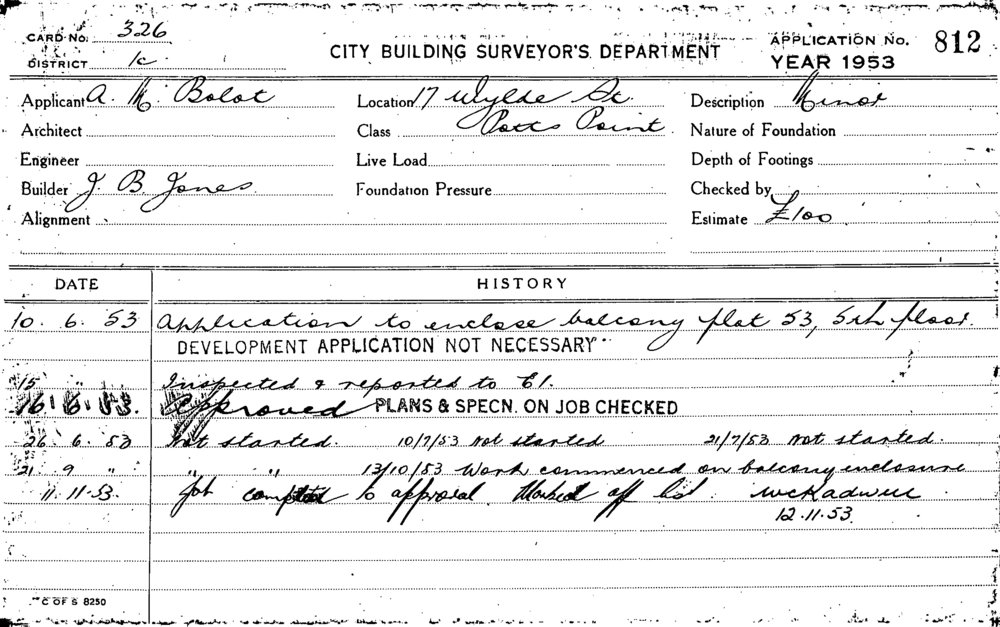 CARD No. 326
DISTRICT 1c
CITY BUILDING SURVEYOR'S DEPARTMENT
APPLICATION No. 812
YEAR 1953
Applicant A. M. Bolot Location 17 Wylde St. Description Minor
Architect Class Potts Point. Nature of Foundation
Engineer Live Load Depth of Footings
Builder J. B. Jones. Foundation Pressure Checked by
Alignment Estimate £100
DATE HISTORY
10. 6. 53 Application to enclose balcony flat 53, 5th floor.
DEVELOPMENT APPLICATION NOT NECESSARY
15 " Inspected & reported to
16. 6. 53. Approved PLANS & SPECN. ON JOB CHECKED
26 6. 53 Not started. 10/7/53 Not started 21/7/53 Not started.
21 9 " " " 13/10/53 Work commenced on balcony enclosure
11.11.53. Job completed to approval Marked off list
12.11.53
C OF S 8250